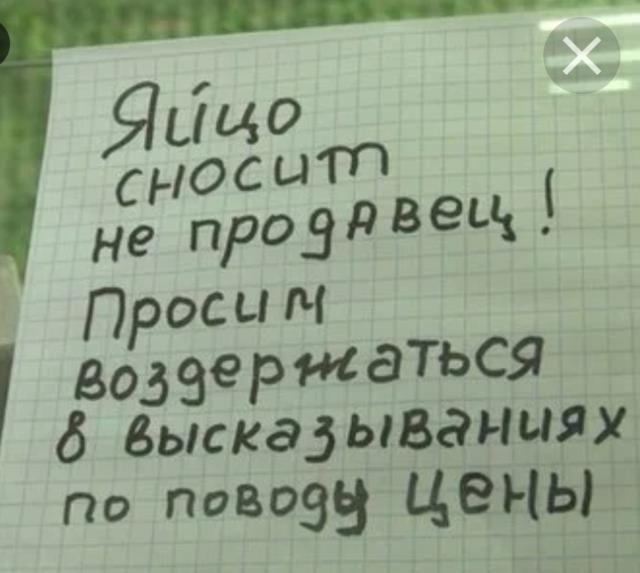 Яйцо
сносит
не продавец!
Просим
воздержаться
в высказываниях
по поводу цены